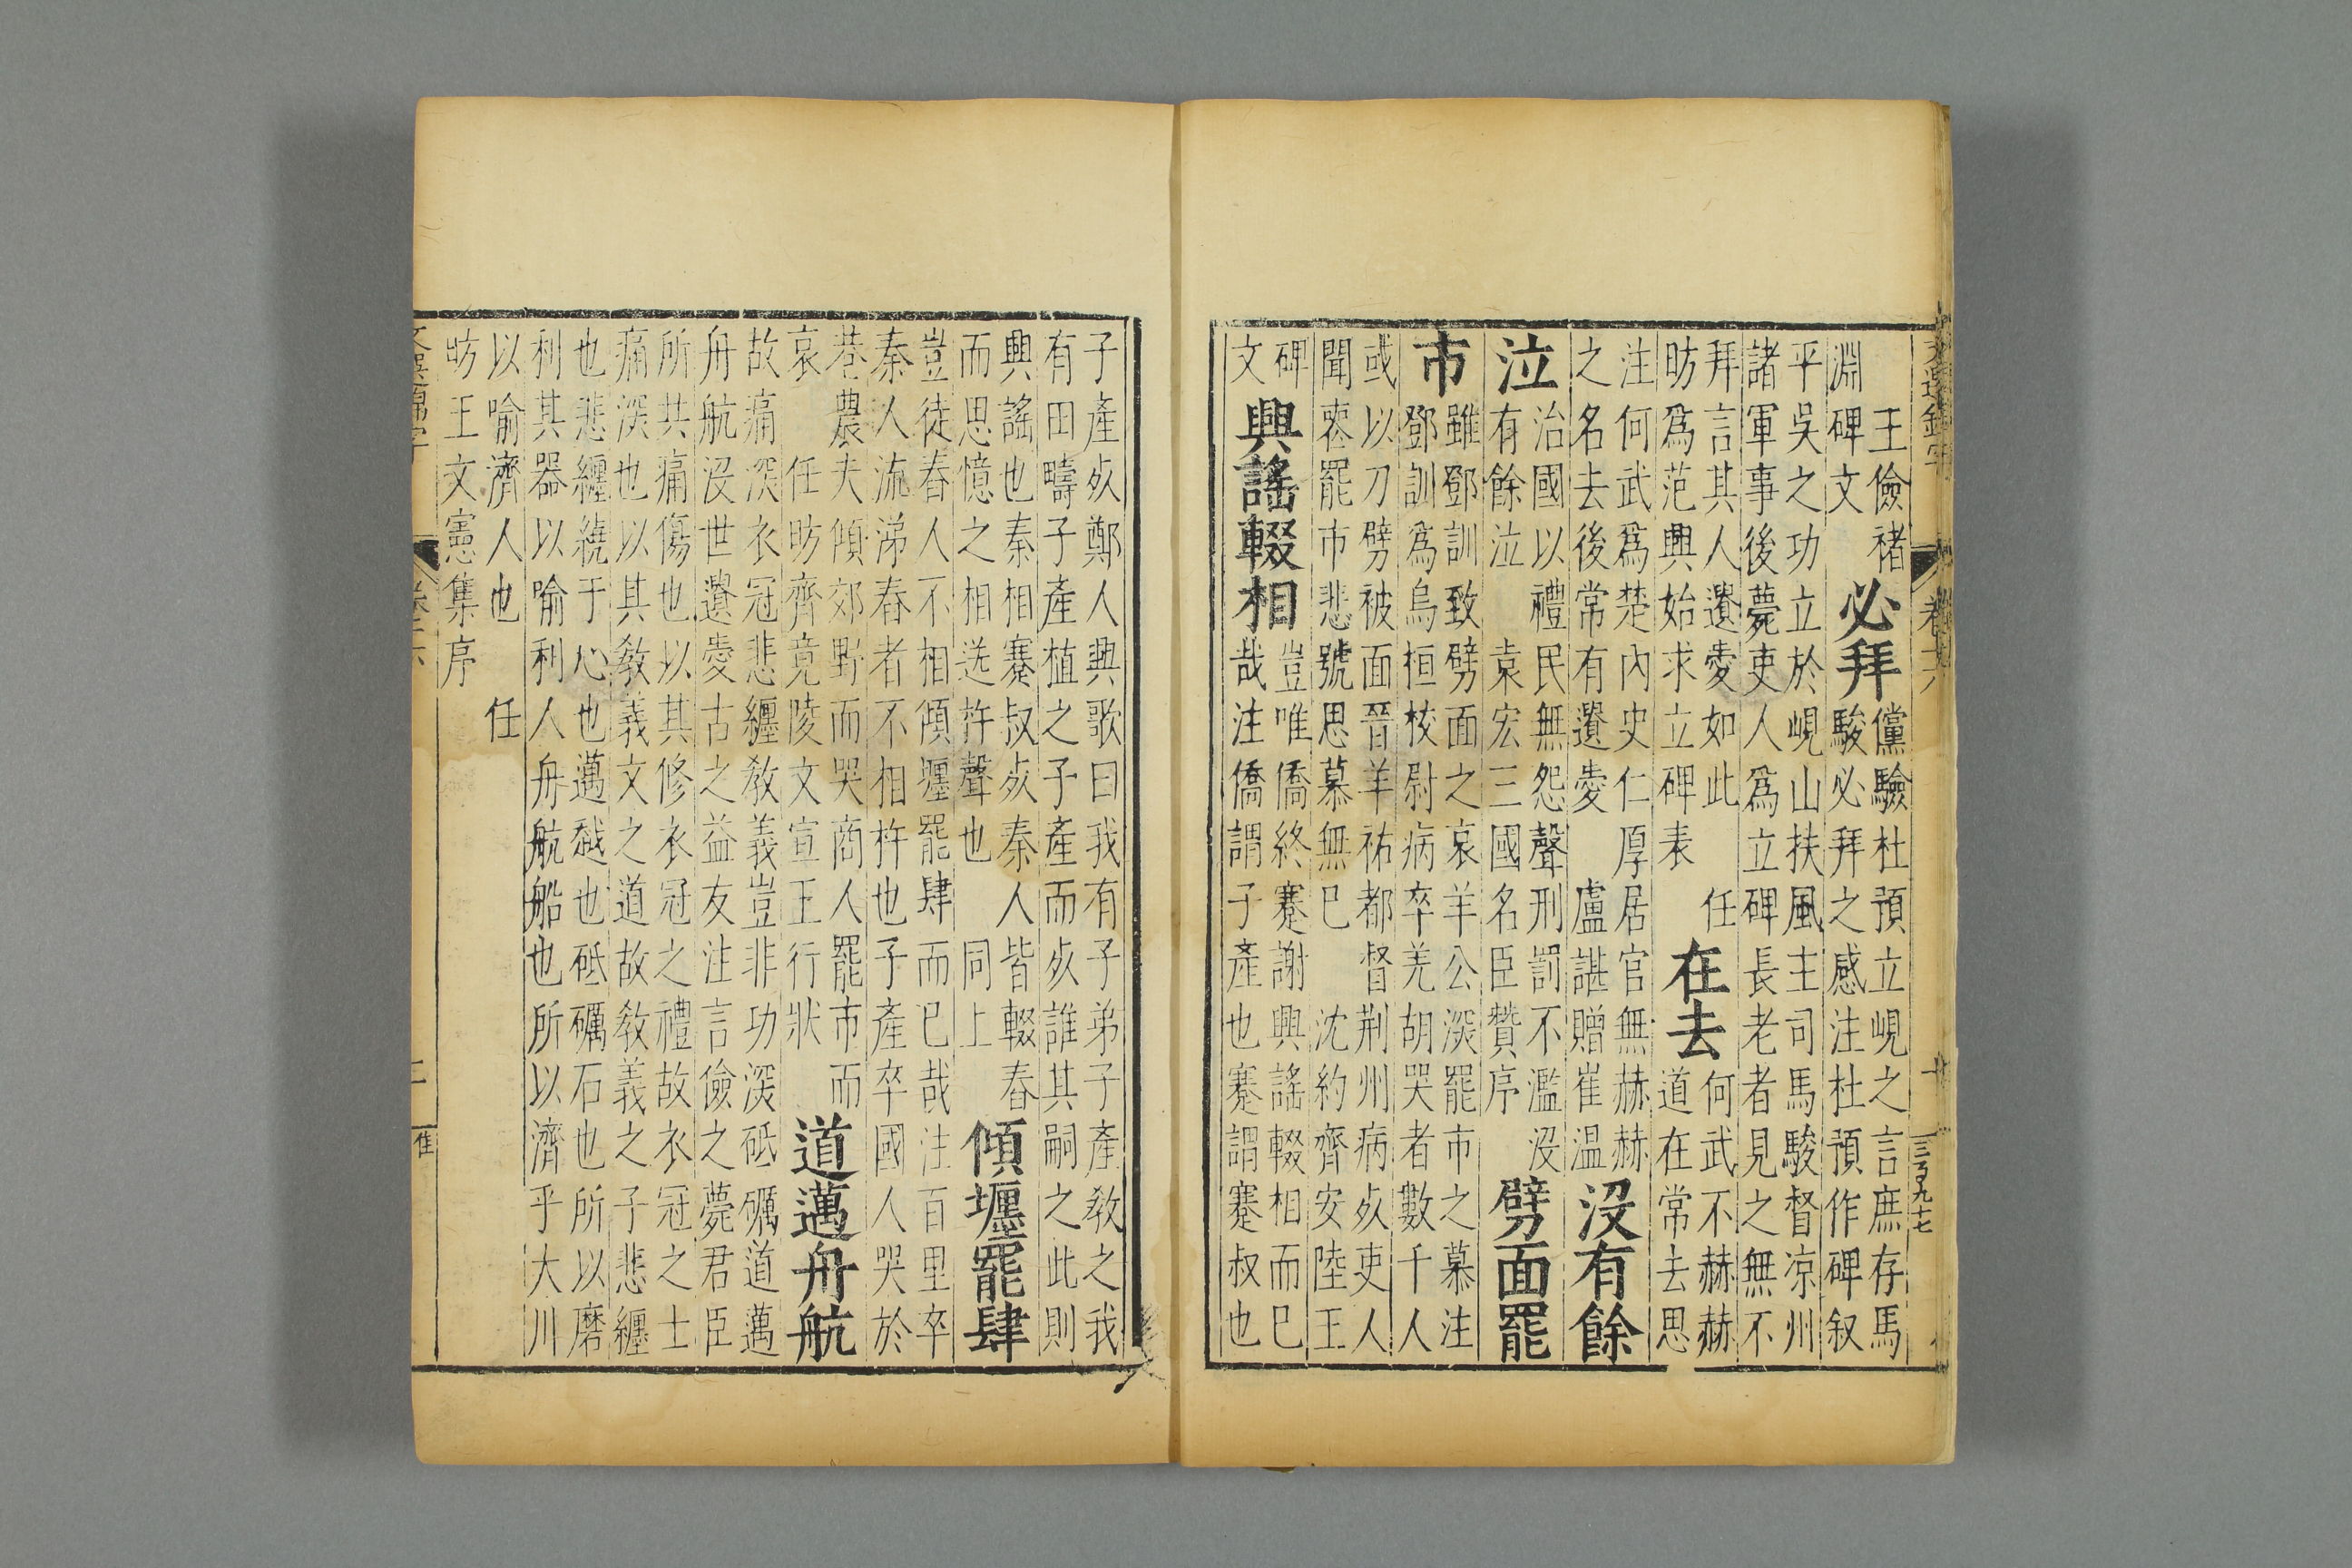 文選錦字 卷十六 三百九十七
王儉褚
淵碑文
必拜
儻驗杜預立峴之言庶存馬
駿必拜之感注杜預作碑叙
平吳之功立於峴山扶風主司馬駿督凉州
諸軍事後薨吏人爲立碑長老者見之無不
拜言其人遺愛如此 任
昉爲范興始求立碑表
在去
何武不赫赫
道在常去思
注何武爲楚內史仁厚居官無赫赫
之名去後常有遺愛 盧諶贈崔温
沒有餘
泣
治國以禮民無怨聲刑罰不濫沒
有餘泣 袁宏三國名臣贊序
劈面罷
市
雖鄧訓致劈面之哀羊公深罷市之慕注
鄧訓爲烏桓校尉病卒羌胡哭者數千人
或以刀劈被面晉羊祐都督荆州病歿吏人
聞喪罷市悲號思慕無已 沈約齊安陸王
碑
文
興謠輟相
豈唯僑終蹇謝興謠輟相而已
哉注僑謂子產也蹇謂蹇叔也
子產歿鄭人興歌曰我有子弟子產教之我
有田疇子產植之子產而歿誰其嗣之此則
興謠也秦相蹇叔歿秦人皆輟舂
而思憶之相送杵聲也 同上
傾壥罷肆
豈徒舂人不相傾壥罷肆而已哉注百里卒
秦人流涕舂者不相杵也子產卒國人哭於
巷農夫傾郊野而哭商人罷市而
哀 任昉齊竟陵文宣王行狀
道邁舟航
故痛深衣冠悲纏教義豈非功深砥礪道邁
舟航沒世遺愛古之益友注言儉之薨君臣
所共痛傷也以其修衣冠之禮故衣冠之士
痛深也以其教義文之道故教義之子悲纏
也悲纏繞于心也邁越也砥礪石也所以磨
利其器以喻利人舟航船也所以濟乎大川
以喻濟人也 任
昉王文憲集序